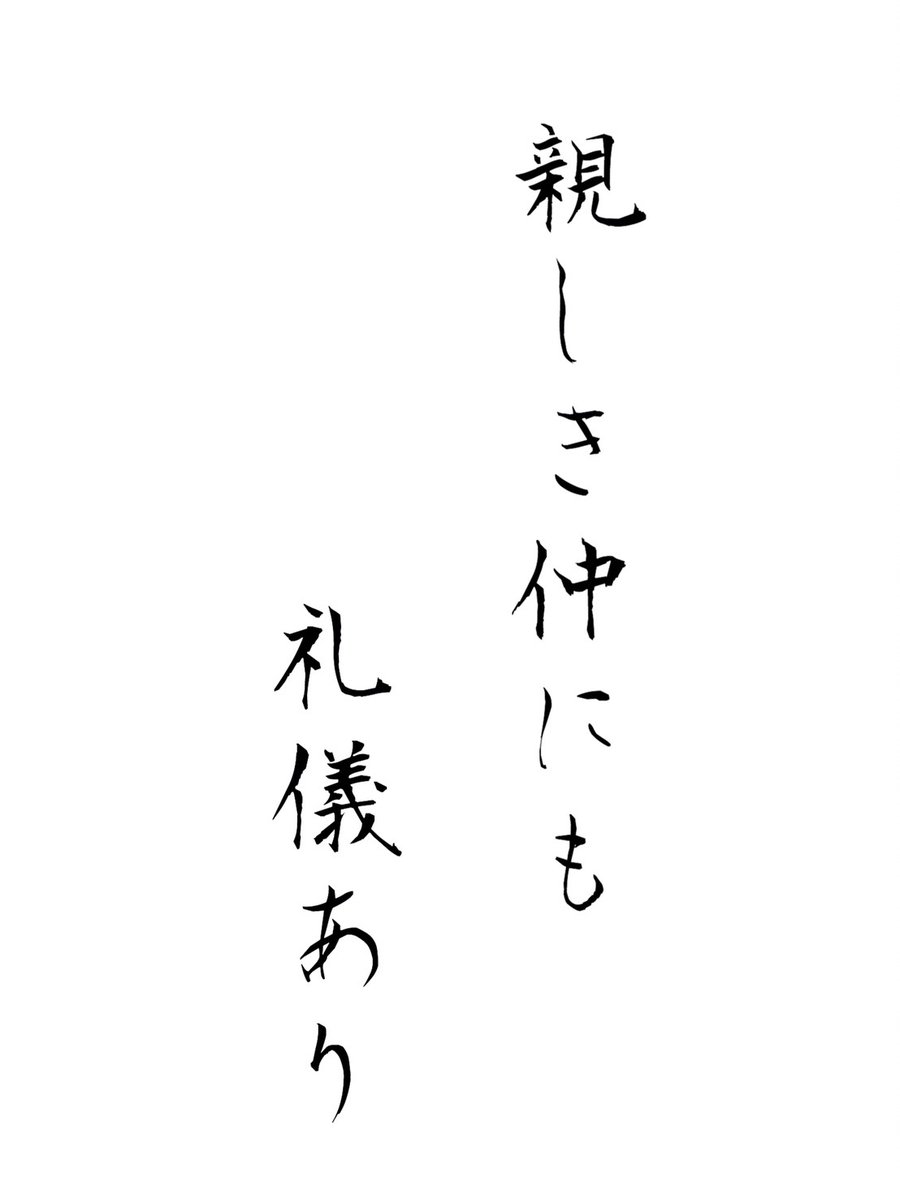 親しき仲にも
礼儀あり